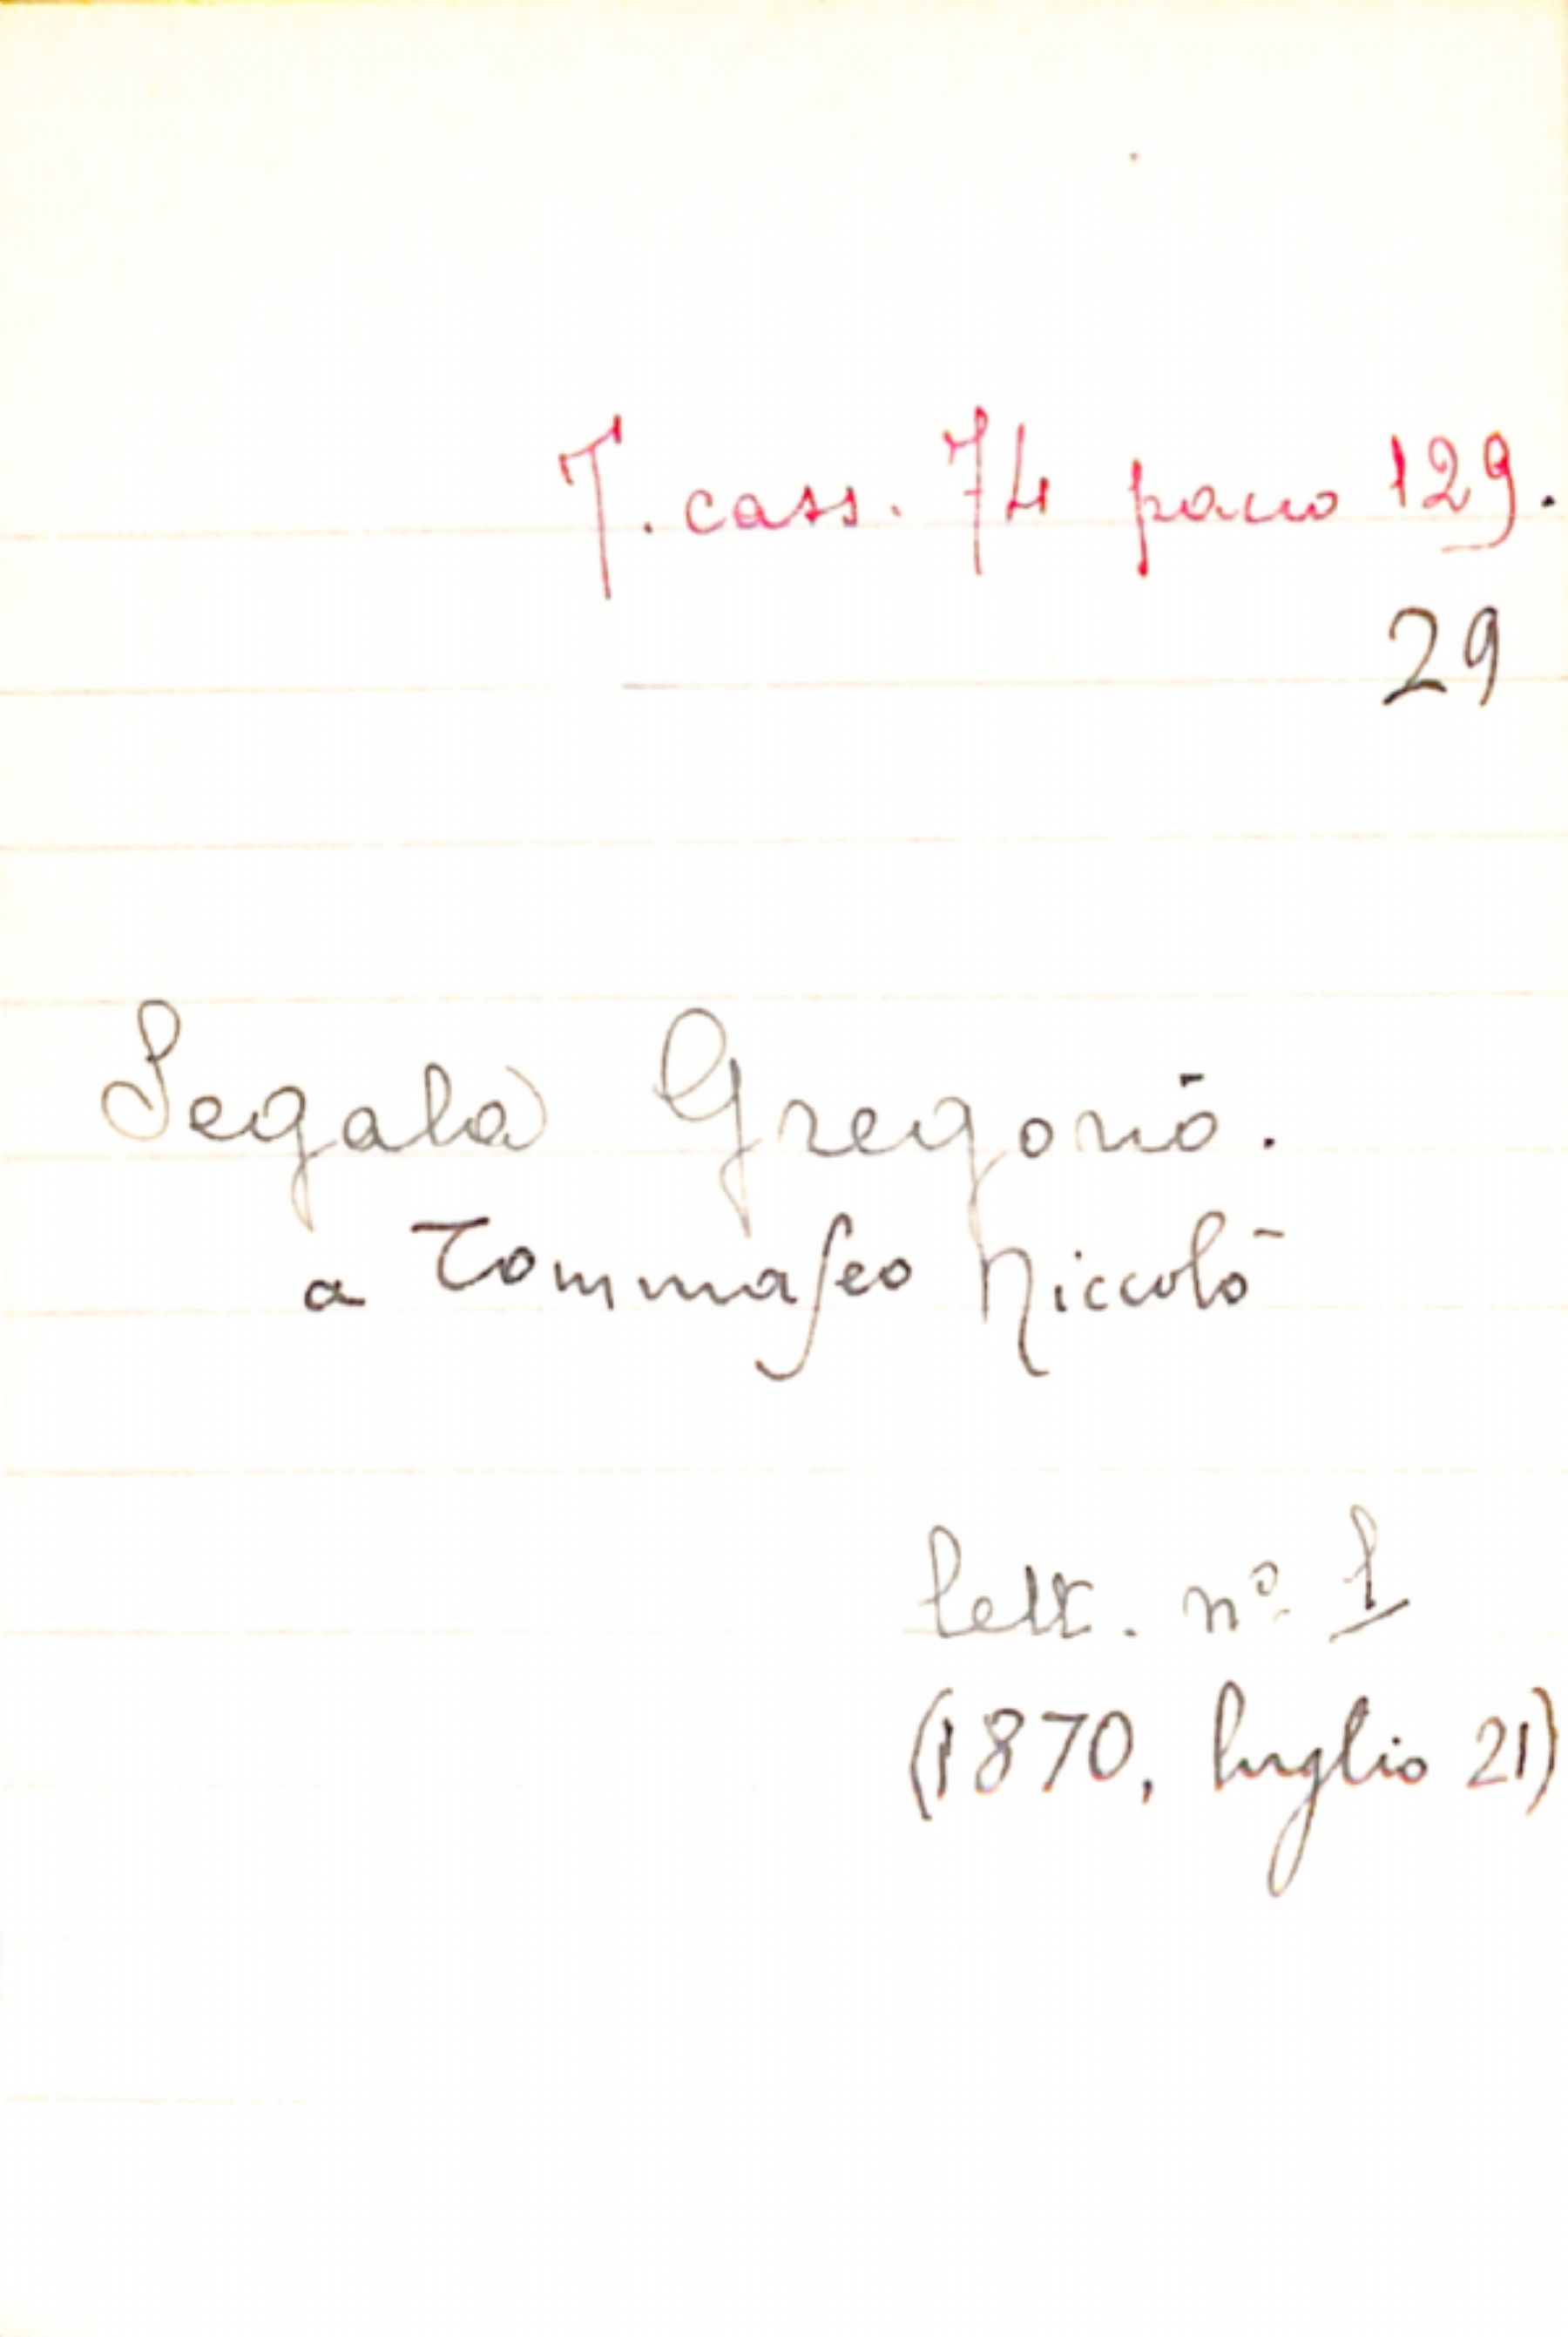 T. cass. 74 pacco 129.
29
Segala Gregorio.
a Tommaseo Niccolò
lett. nº 1
(1870, luglio 21)